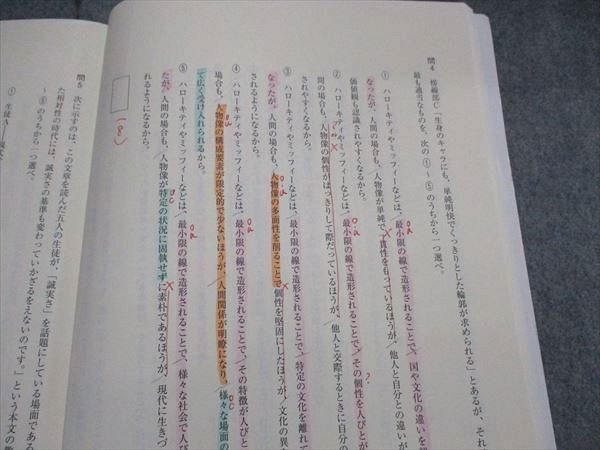 問4 傍線部C「生身のキャラにも、単純明快でくっきりとした輪郭が求められる」とあるが、それ
最も適当なものを、次の①～⑤のうちから一つ選べ。
① ハローキティやミッフィーなどは、最小限の線で造形されることで、国や文化の違いを
なったが、人間の場合も、人物像が単純で一貫性をもっているほうが、他人と自分との違いが
価値観も認識されやすくなるから。
② ハローキティやミッフィーなどは、最小限の線で造形されることで、その個性を人びとが
間の場合も、人物像の個性がはっきりして際だっているほうが、他人と交際するときに自分の
されやすくなるから。
③ ハローキティやミッフィーなどは、最小限の線で造形されることで、特定の文化を離れて
なったが、人間の場合も、人物像の多面性を削ることで個性を堅固にしたほうが、文化の異な
されるようになるから。
④ ハローキティやミッフィーなどは、最小限の線で造形されることで、その特徴が人びと
場合も、人物像の構成要素が限定的で少ないほうが、人間関係が明瞭になり、様々な場面の
て広く受け入れられるから。
⑤ ハローキティやミッフィーなどは、最小限の線で造形されることで、様々な社会で人び
たが、人間の場合も、人物像が特定の状況に固執せずに素朴であるほうが、現代に生きづ
れるようになるから。
(8)
問5 次に示すのは、この文章を読んだ五人の生徒が、「誠実さ」を話題にしている場面であ
た相対性の時代には、誠実さの基準も変わっていかざるをえないのです。」という本文の
～⑤のうちから一つ選べ。
① 生徒A